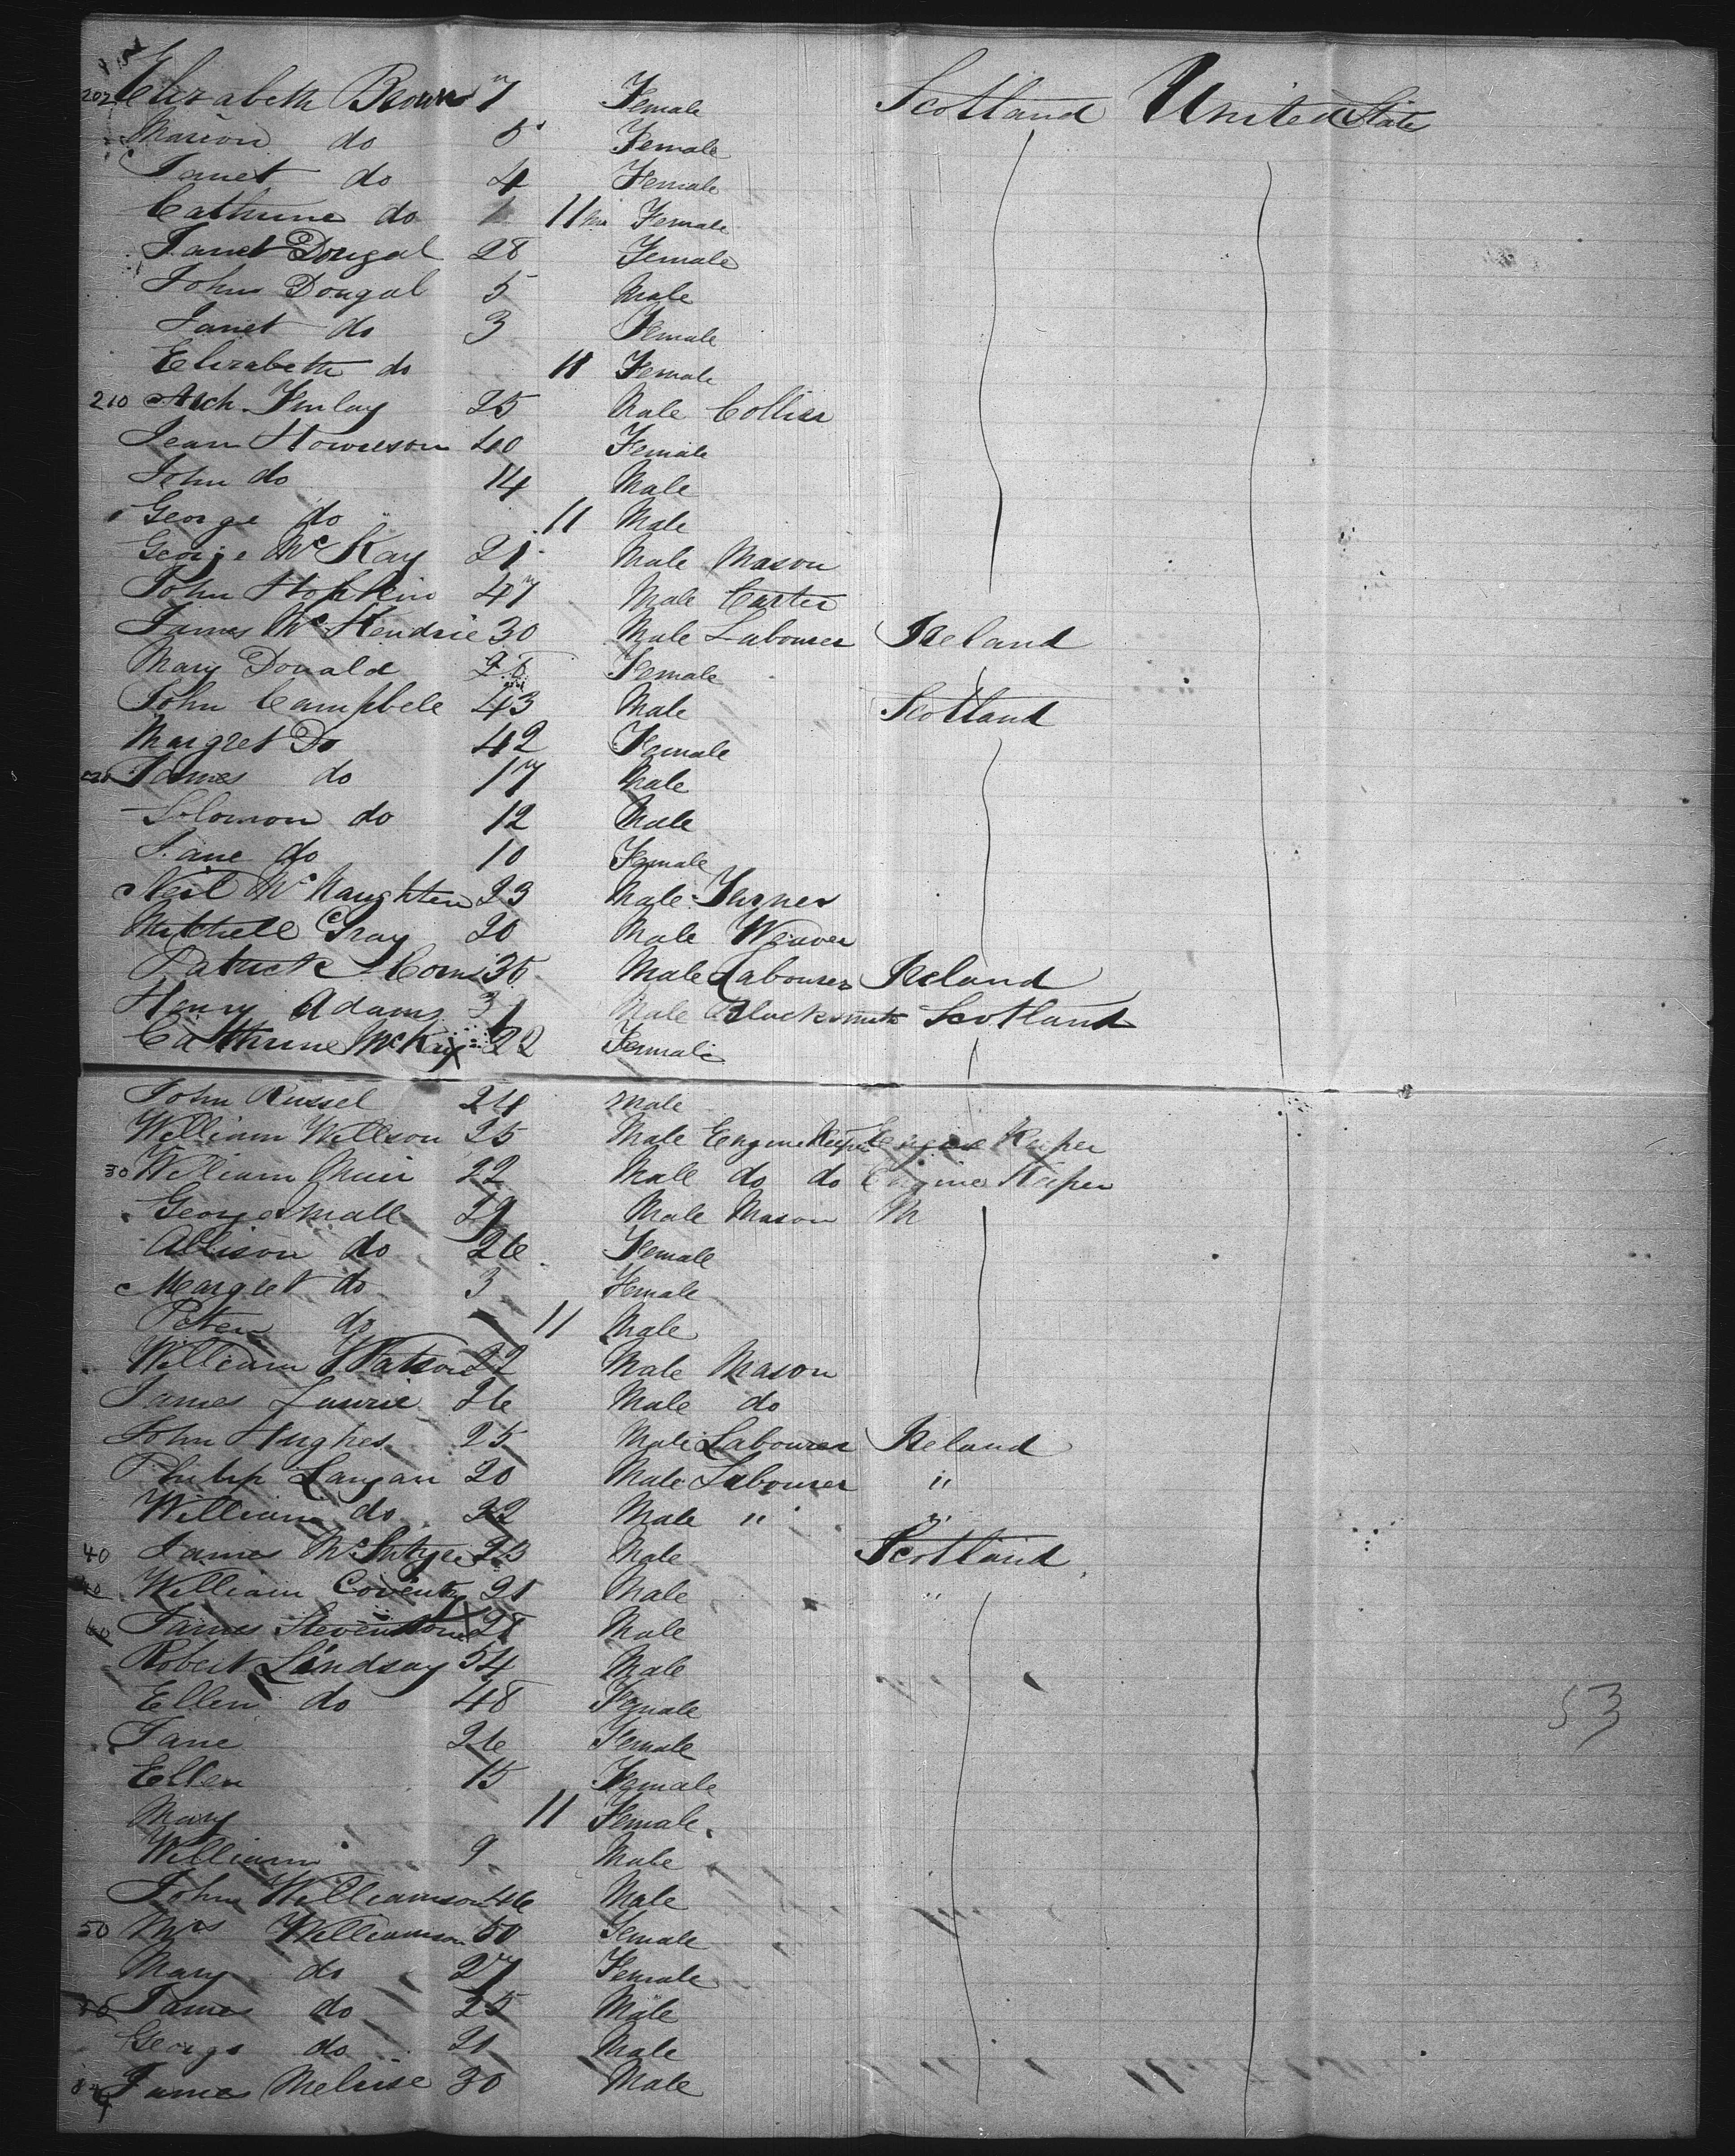 202 Elizabeth Brown 7 Female Scotland United States
Marion do 5 Female
Janet do 4 Female
Cathrine do 11 m Female
Janet Dougal 28 Female
John Dougal 5 Male
Janet do 3 Female
Elizabeth do 11 Female
210 Arch. Finlay 25 Male Collier
Jean Howieson 40 Female
John do 14 Male
George do 11 Male
George McKay 21 Male Mason
John Hopkin 47 Male Carter
James McKendrie 30 Male Labourer Ireland
Mary Donald Female
John Campbele 43 Male Scotland
Margret Do 42 Female
James do 17 Male
Solomon do 12 Male
Jane do 10 Female
Neil McNaughten 23 Male
Mitchell Gray 20 Male Weaver
Patrick 35 Male Labourer Ireland
Henry Adams 31 Male Blacksmith Scotland
Cathrine McKay 22 Female
John Russel 24 Male
William Willson 25 Male Engine Keeper Engine Keeper
30 William Muir 22 Male do do Engine Keeper
George Small 29 Male Mason M
Allison do 26 Female
Margret do 3 Female
Peter do 11 Male
William Watson 22 Male Mason
James Lawrie 26 Male do
John Hughes 25 Male Labourer Ireland
Philip Langan 20 Male Labourer "
William do 22 Male " "
40 James McIntyre 23 Male Scotland
William Coventry 21 Male "
James Stevenson 28 Male
Robert Lindsay 54 Male
Ellen do 48 Female
53
Jane 26 Female
Ellen 15 Female
Mary 11 Female
William 9 Male
John Williamson 46 Male
50 Mrs Williamson 50 Female
Mary do 27 Female
James do 25 Male
George do 21 Male
James 30 Male